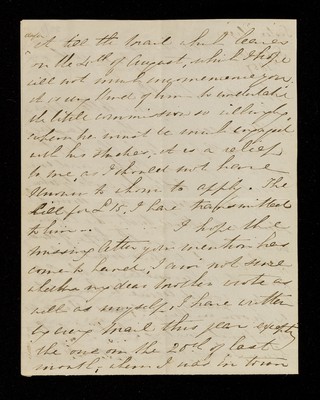 it till the mail which leaves
on the 4th of August, which I hope
will not much inconvenience you
it is very kind of him to undertake
the little commission so willingly,
when he must be much engaged
with his studies, it is a relief
to me, as I should not have
known to whom to apply. The
bill for £15, I have transmitted
to him. I hope the
missing letter you mention has
come to hand, I am not sure
whether my dear brother wrote as
well as myself, I have written
by every mail this year except
the one on the 20th of last
month, when I was in town